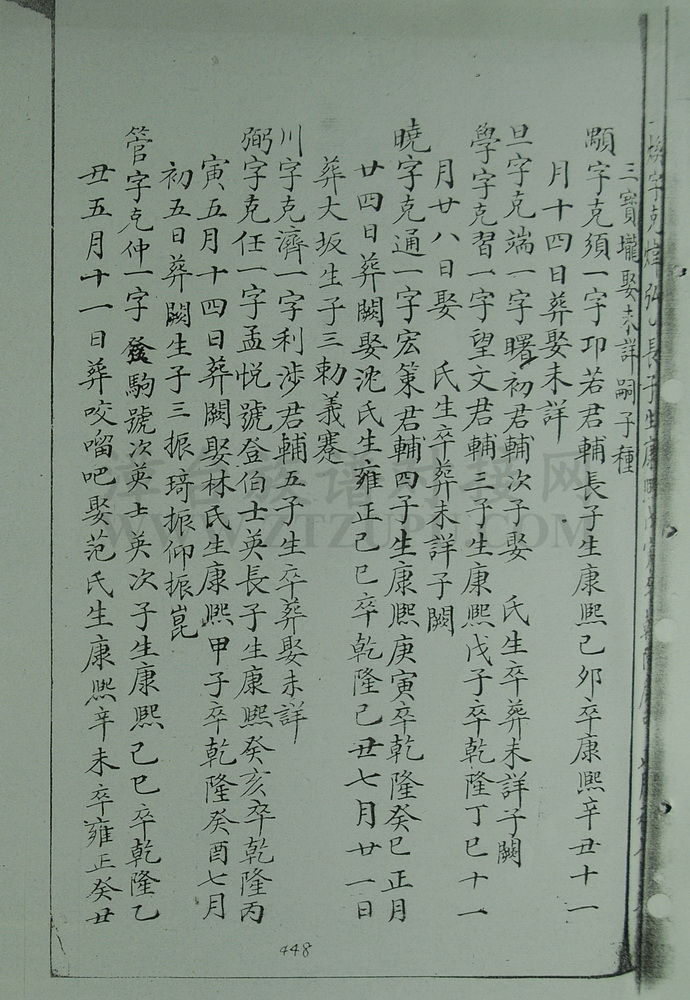 字克　長子生康
三寶壠娶未詳嗣子種
顒字克須一字卭若君輔長子生康熙己夘卒康熙辛丑十一
月十四日葬娶未詳
旦字克端一字曙初君輔次子娶　氏生卒葬未詳子闕
學字克習一字望文君輔三子生康熙戊子卒乾隆丁巳十一
月廿八日娶　氏生卒葬未詳子闕
曉字克通一字宏策君輔四子生康熙庚寅卒乾隆癸巳正月
廿四日葬闕娶沈氏生雍正己巳卒乾隆己丑七月廿一日
葬大坂生子三勅義蹇
川字克濟一字利涉君輔五子生卒葬娶未詳
弼字克任一字孟悦號登伯士英長子生康熙癸亥卒乾隆丙
寅五月十四日葬闕娶林氏生康熙甲子卒乾隆癸酉七月
初五日葬闕生子三振琦振仰振崑
管字克仲一字發駒號次英士英次子生康熙己巳卒乾隆乙
丑五月十一日葬咬𠺕吧娶范氏生康熙辛未卒雍正癸丑
448
WWW.ZTZUPU.COM